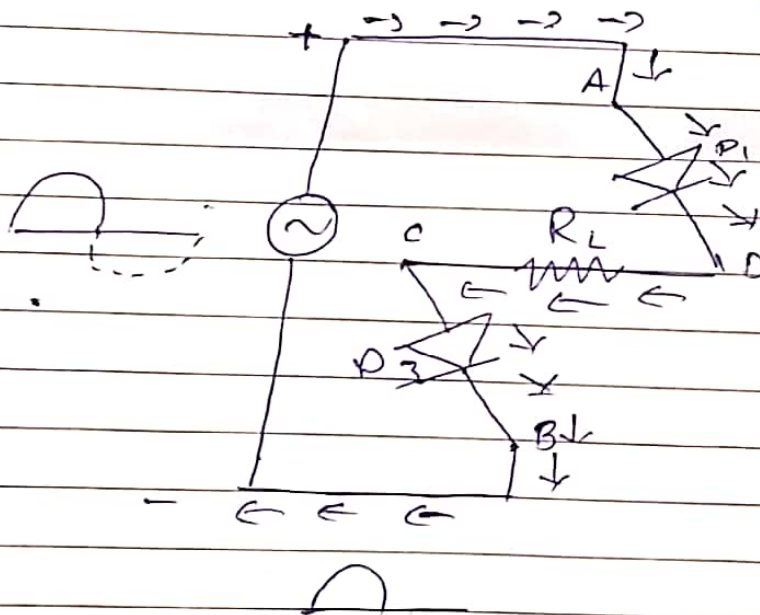 +
A
D1
~
C
RL
D
D3
B
-